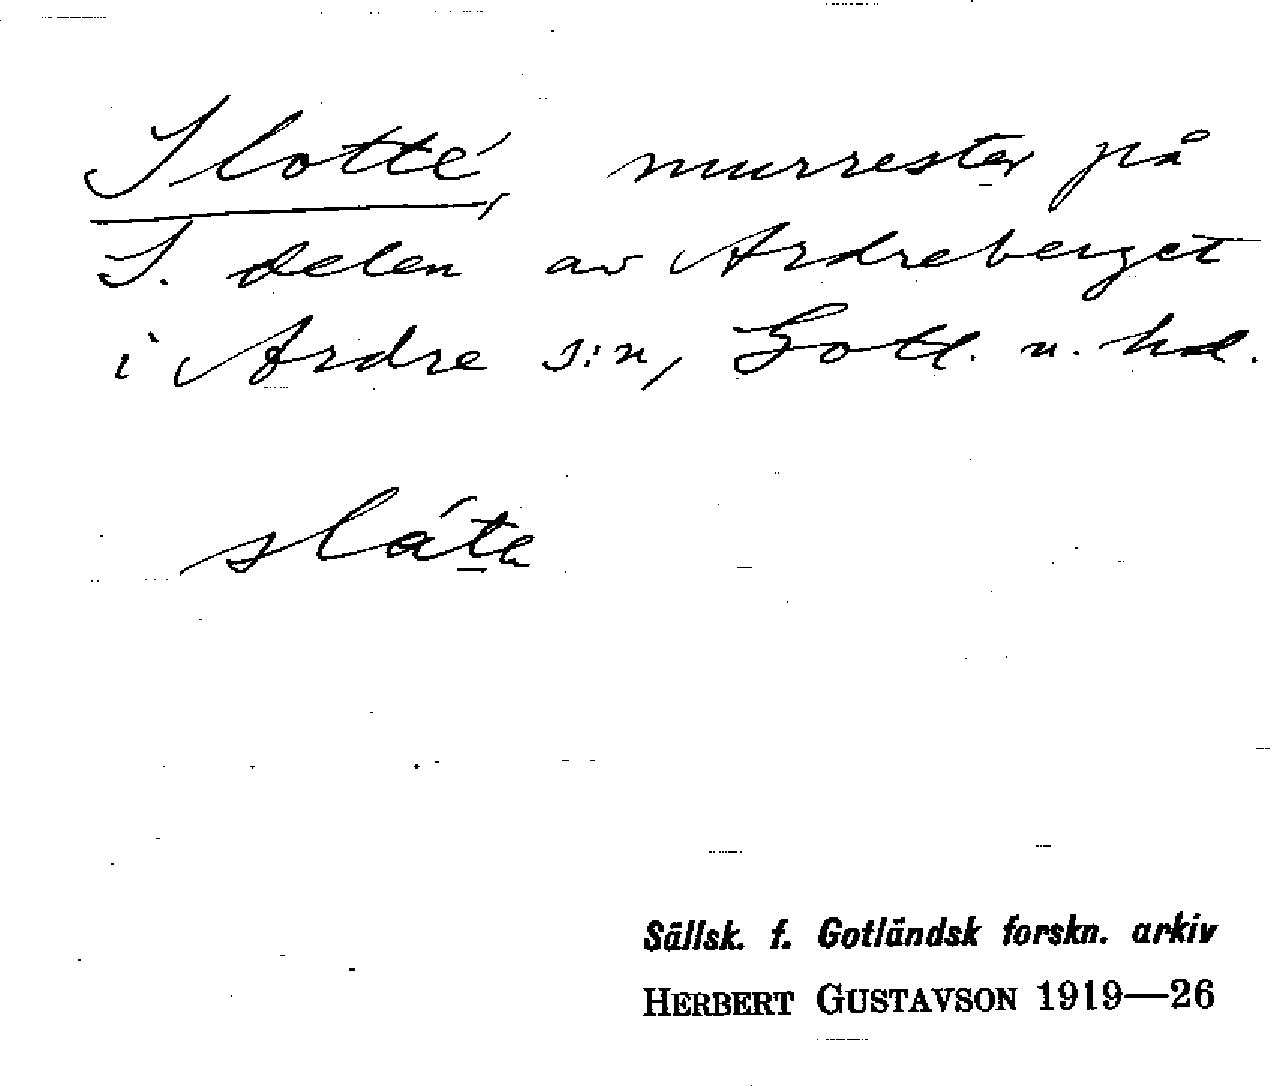 Slotté, murrester på
S. delen av Ardreberget
i Ardre s:n, Gotl. n. hd.
Sällsk. f. Gotländsk forskn. arkiv
HERBERT GUSTAVSON 1919—26